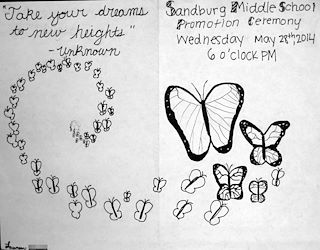 "Take your dreams
to new heights"
-unknown
Sandburg Middle School
Promotion Ceremony
Wednesday May 28th 2014
6 o'clock PM